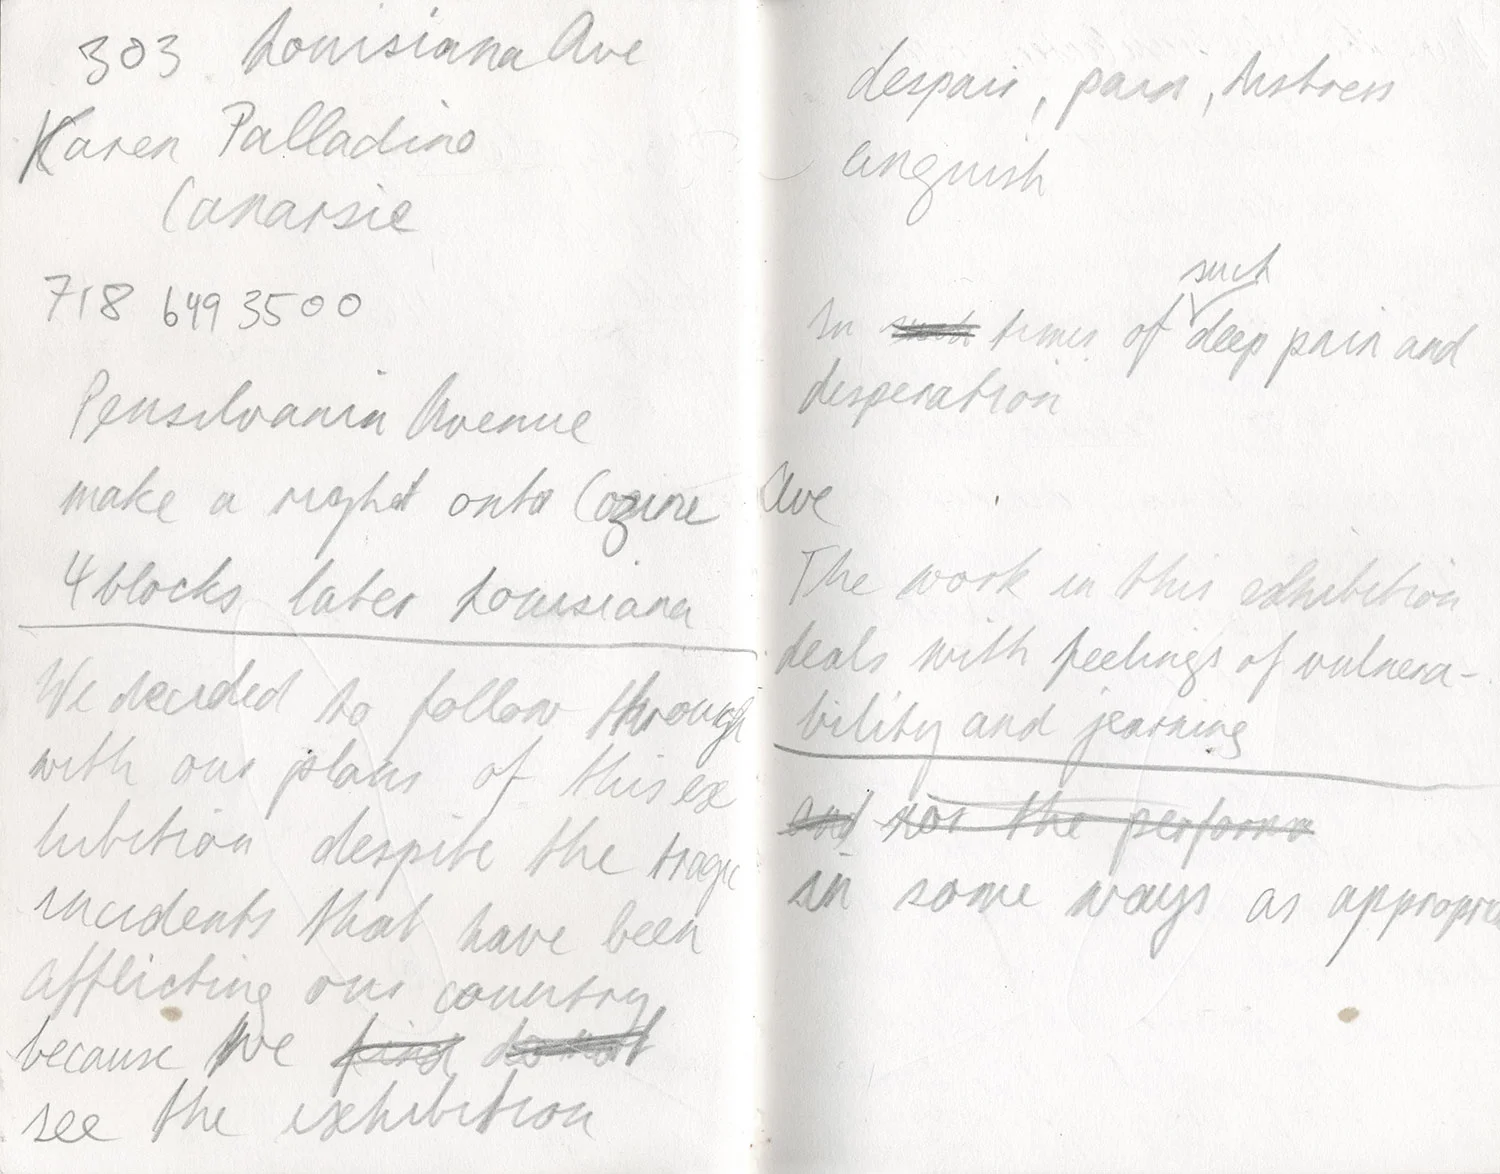 303 Louisiana Ave
Karen Palladino
Canarsie
718 649 3500
Pensilvania Avenue
make a right onto Cozine Ave
4 blocks later Louisiana
We decided to follow through
with our plans of this ex
hibition despite the tragic
incidents that have been
afflicting our country
because we find do not
see the exhibition
despair, pain, distress
anguish
such
In such times of deep pain and
desperation
The work in this exhibition
deals with feelings of vulnera-
bility and jearning
and not the perform
in some ways as appropria